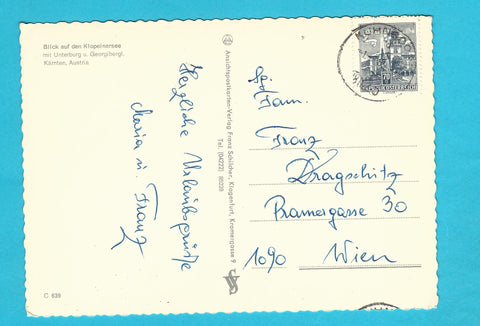 Blick auf den Klopeinersee
mit Unterburg u. Georgibergl.
Kärnten, Austria
Herzliche Urlaubsgrüße
Maria u. Franz
C 639
Ansichtspostkarten-Verlag Franz Schilcher, Klagenfurt, Kramergasse 9
Tel. (04222) 85229
REPUBLIK ÖSTERREICH
Fam.
Franz
Dragschitz
Pramergasse 30
1090 Wien